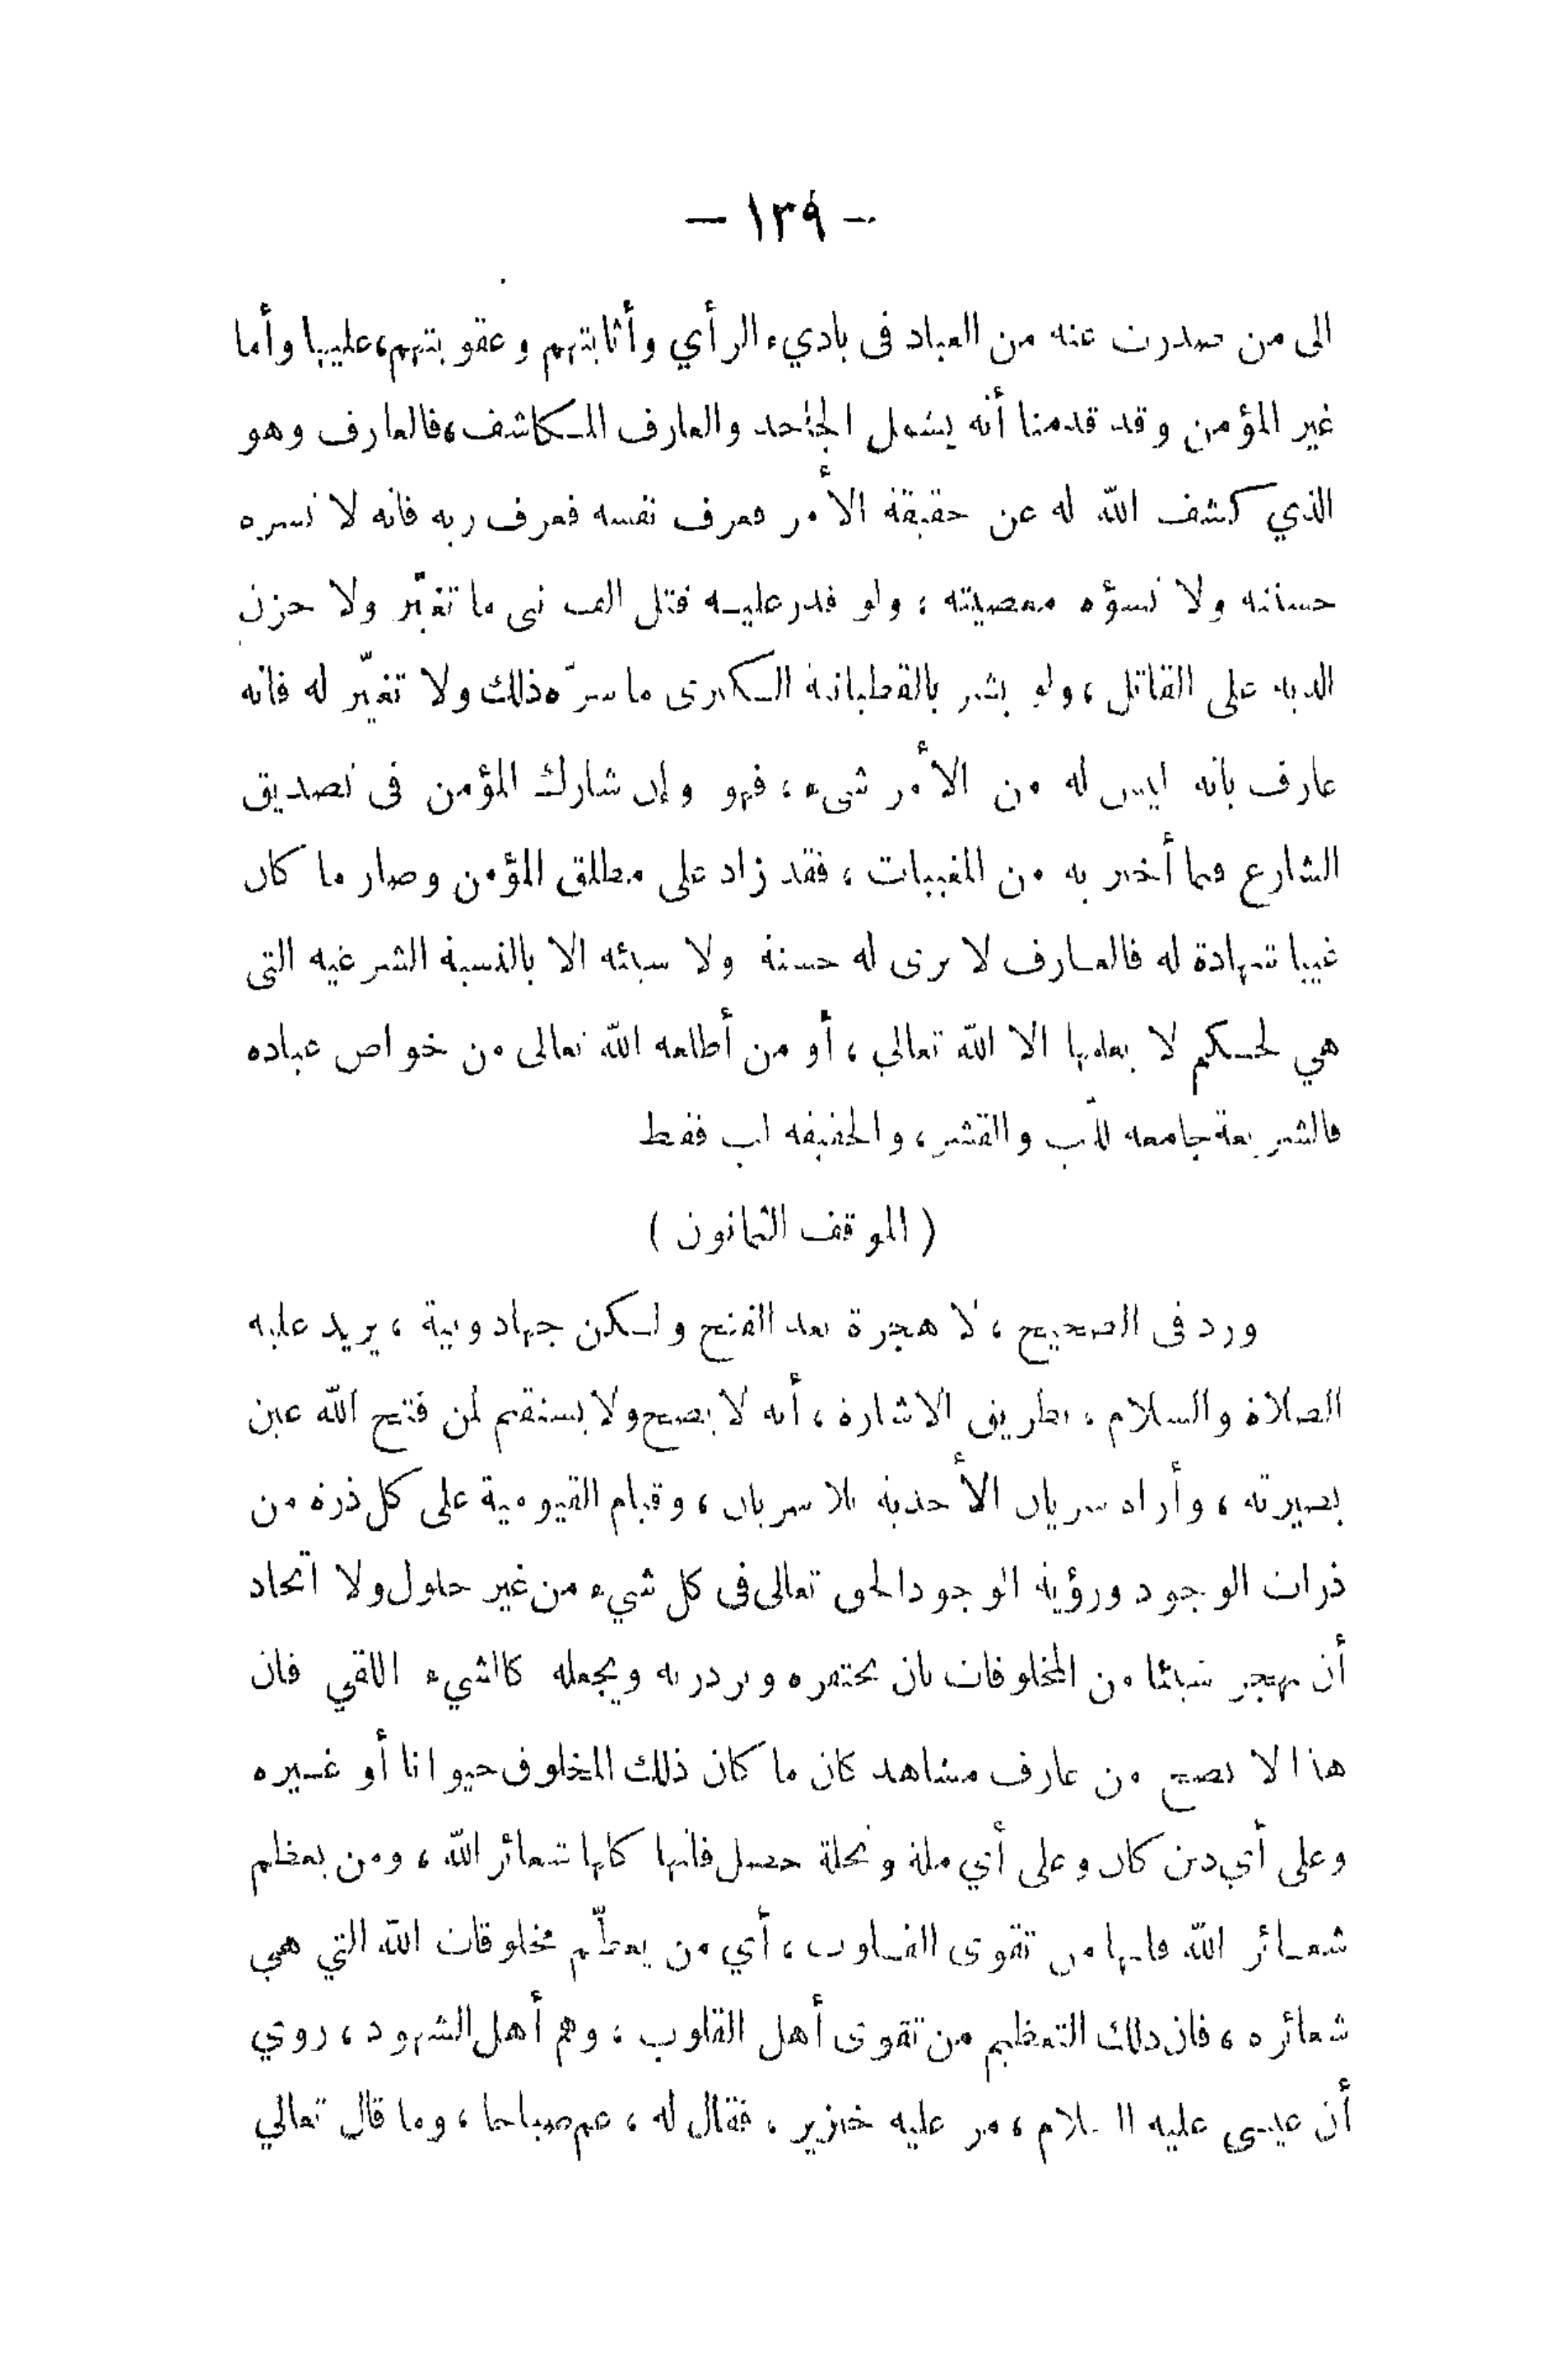 — ١٣٩ —
الى من صدرت عنه من العباد فى باديء الرأي وأثابتهم وعقوبتهم، عليها وأما
غير المؤمن وقد قدمنا أنه يشمل الجاحد والعارف المكاشف، فالعارف وهو
الذي كشف الله له عن حقيقة الأمر فعرف نفسه فعرف ربه فانه لا تسره
حسنته ولا تسؤه معصيته، ولو قدر عليه قتل الف نبى ما تغيّر ولا حزن
على القاتل، ولو بشر بالقطبانية الكبرى ما سرّه ذلك ولا تغيّر له فانه
عارف بانه ليس له من الأمر شىء، فهو وإن شارك المؤمن فى تصديق
الشارع فيما أخبر به من المغيبات، فقد زاد على مطلق المؤمن وصار ما كان
غيبا شهادة له فالعارف لا يرى له حسنة ولا سيئة الا بالنسبة الشرعية التى
هي لحكم لا يعلمها الا الله تعالى، أو من أطلعه الله تعالى من خواص عباده
فالشريعة جامعة للّب والقشر، والحقيقة لب فقط
( الموقف الثمانون )
ورد فى الصحيح، لا هجرة بعد الفتح ولكن جهاد ونية، يريد عليه
الصلاة والسلام، بطريق الاشارة، أنه لا يصح ولا يستقيم لمن فتح الله عين
بصيرته، وأراه سريان الأحدية بلا سريان، وقيام القيومية على كل ذرة من
ذرات الوجود ورؤية الوجود الحق تعالى فى كل شيء من غير حلول ولا اتحاد
أن يهجر شيئا من المخلوقات بان يحتقره ويزدريه ويجعله كالشيء اللقي فان
هذا لا يصح من عارف مشاهد كان ما كان ذلك المخلوق حيوانا أو غيره
وعلى أي دين كان وعلى أي ملة ونحلة حصل فانها كلها شعائر الله، ومن يعظم
شعائر الله فانها من تقوى القلوب، أي من يعظّم مخلوقات الله التي هي
شعائره، فان ذلك التعظيم من تقوى أهل القلوب، وهم أهل الشهود، روي
أن عيسى عليه السلام، مر عليه خنزير، فقال له، عم صباحا، وما قال تعالي